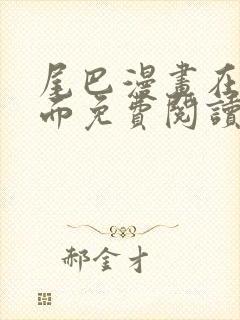 尾巴漫畫在
而免費閱讀
郝金才